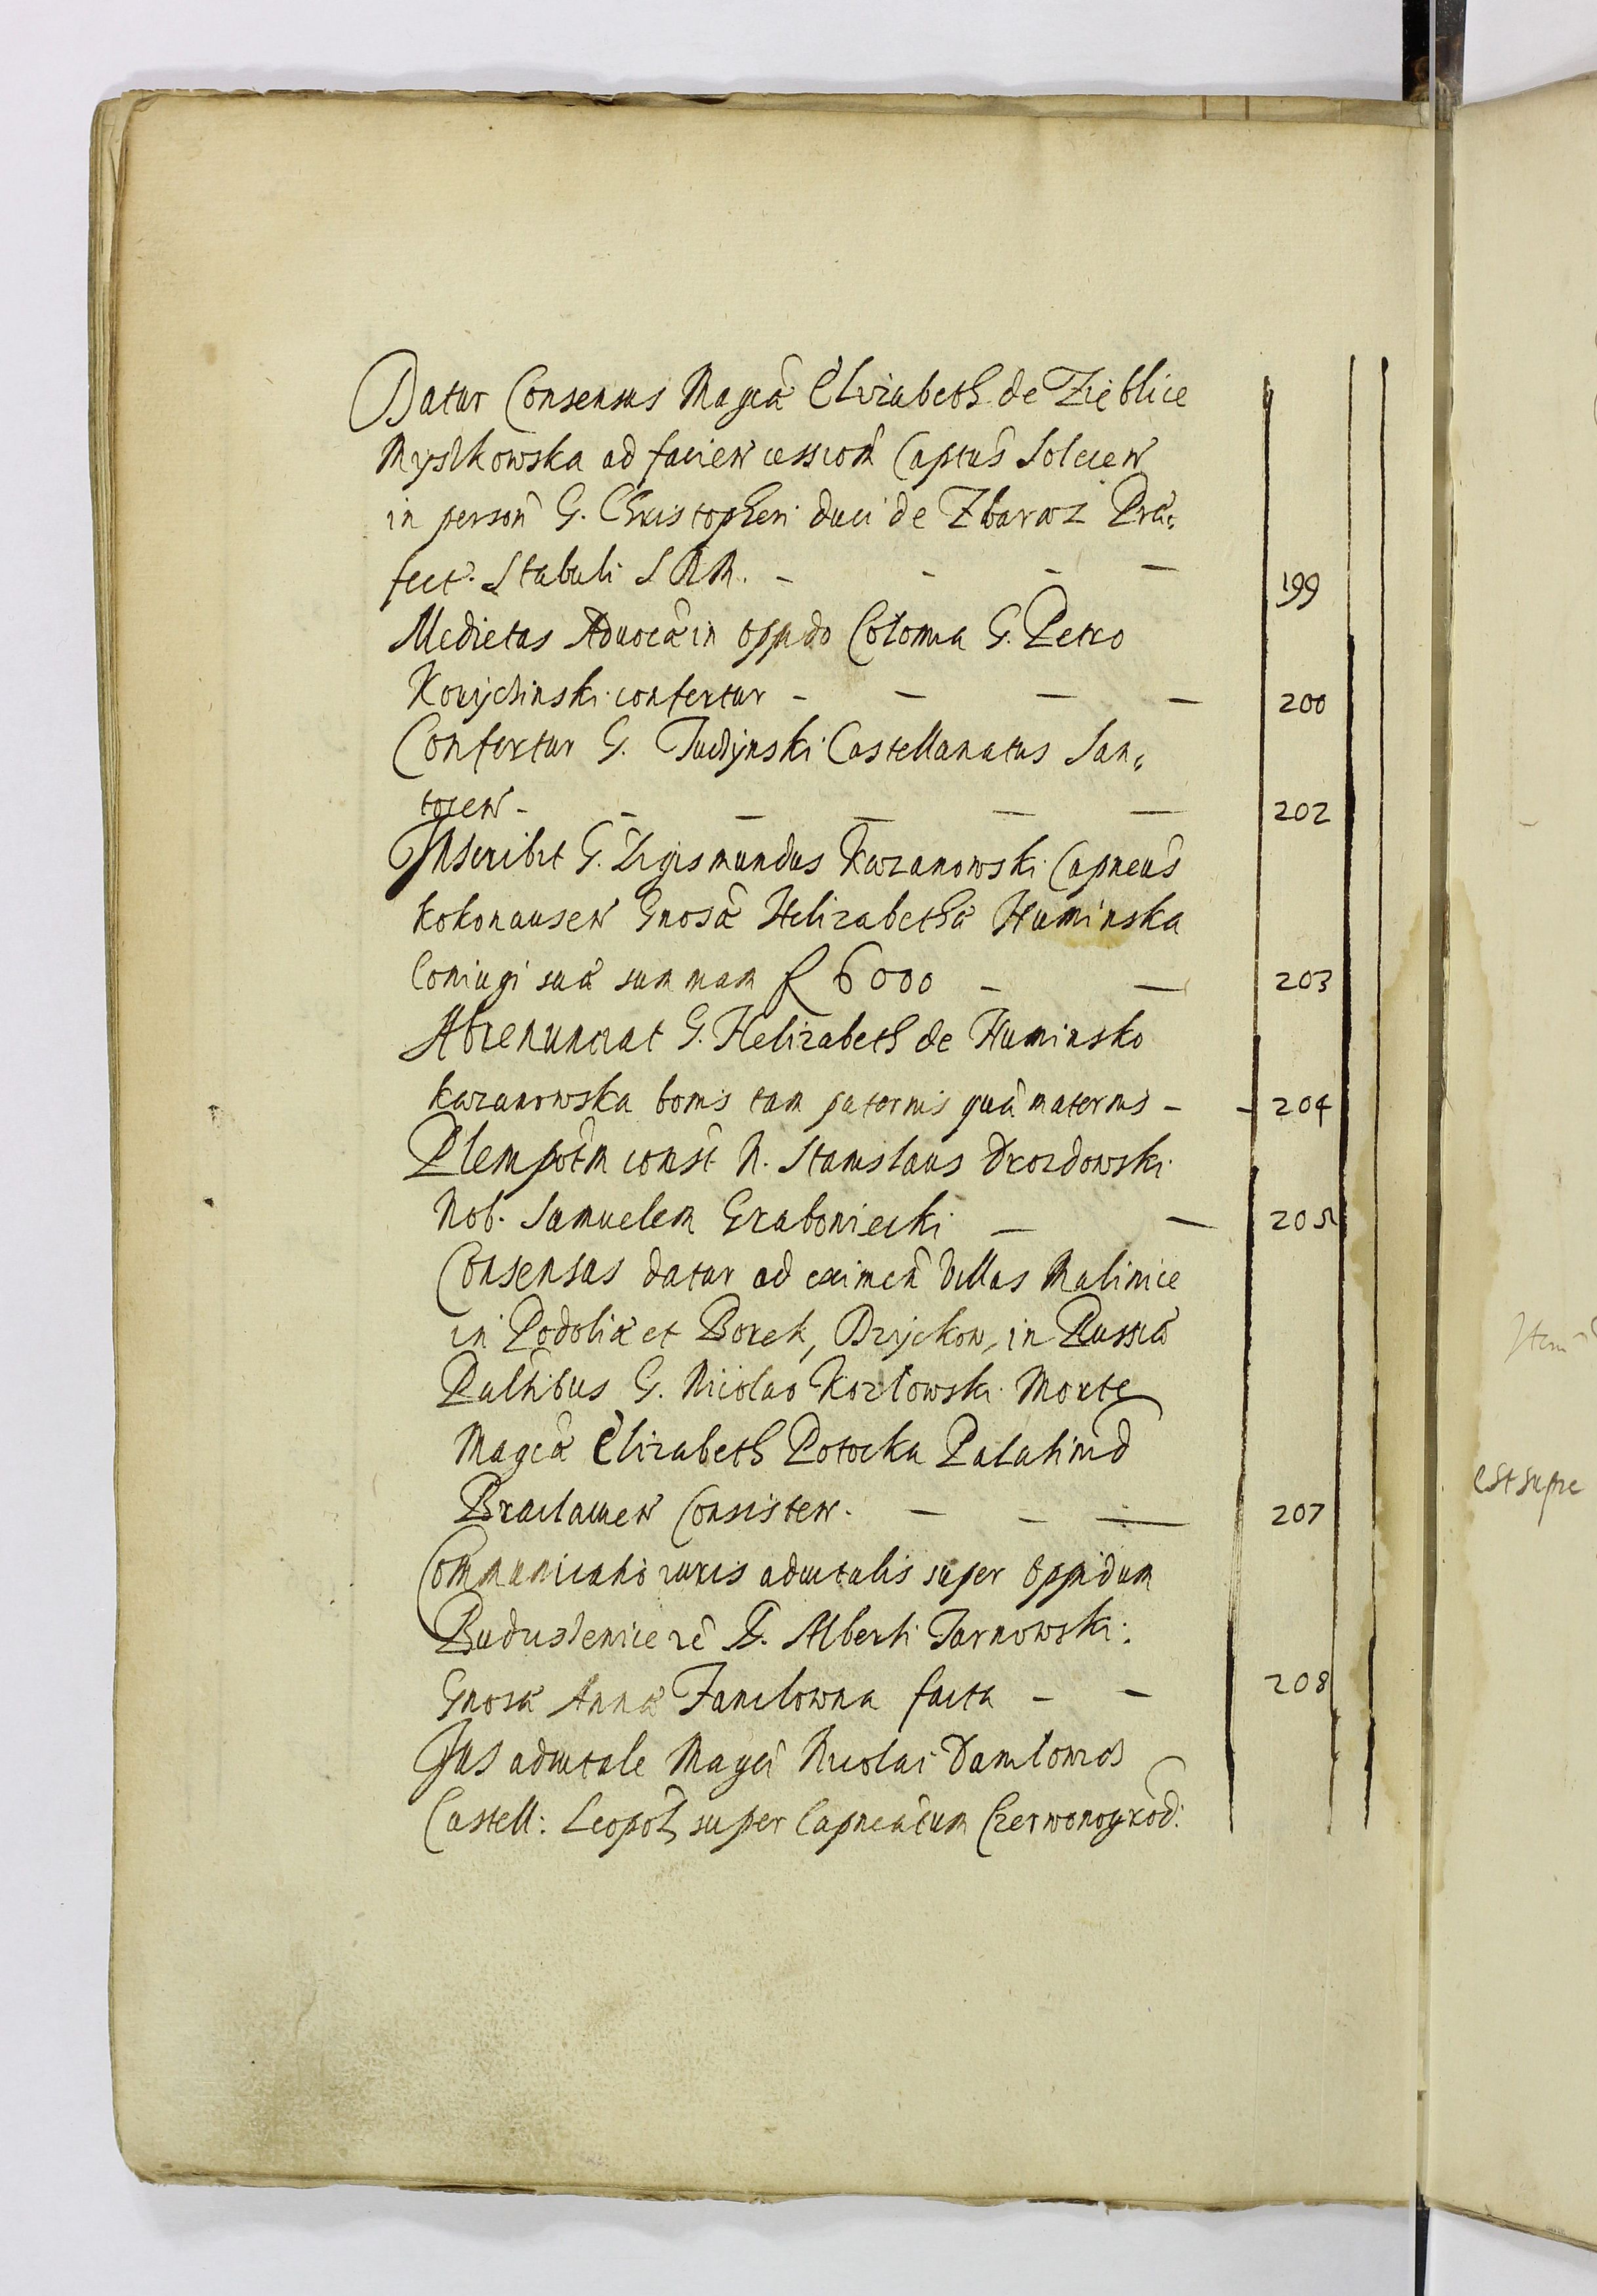 Datur Consensus Magcã Elizabeth de Zięblice
Myszkowska ad facien cession Captus Solecen
in person G. Christopheri duci de Zbaraz Præ:
fect. Stabuli S R M. - - - - 199
Medietas Aduocã in oppido Colomia G. Petro
confertur - - - - 200
Confertur G. Castellanatus San:
tocen - - - - - - 202
Inscribit G. Zigismundus Kazanowski Capneus
Kokonausen Gnosæ Helizabethæ Huminska
Coniugi suæ summam f 6000 - - 203
Abrenunciat G. Helizabeth de Huminsko
Kazanowska bonis tam paternis quã maternis - - 204
Plenipotm const N. Stanislaus Drozdowski
Nob. Samuelem Graboniecki - - 205
Consensus datur ad eximen Villas Malinice
in Podoliæ et Borek, Brzyckow, in Russiæ
Paltibus G. Nicolao Kozlowski Morte
Magcæ Elizabeth Potocka Palatind
Braclauien Consisten. - - - 207
Communicatio iuris aduitalis super Oppidum
re G. Alberti Tarnowski.
Gnosæ Annæ facta - - 208
Jus aduitale Magci Nicolai Danilowicz
Castell: Leopol, super Capneatum Czerwonogrod:
est supre